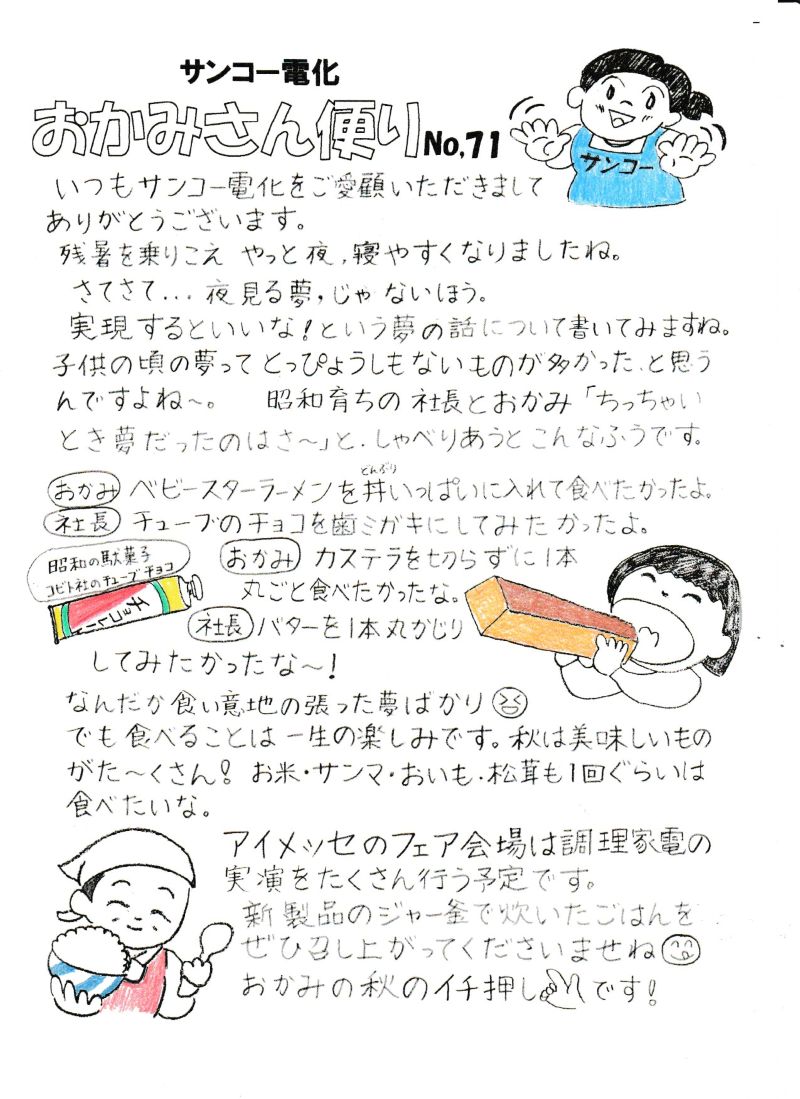 サンコー電化
おかみさん便り No,71
サンコー
いつもサンコー電化をご愛顧いただきまして
ありがとうございます。
残暑を乗りこえ やっと夜、寝やすくなりましたね。
さてさて...夜見る夢、じゃないほう。
実現するといいな!という夢の話について書いてみますね。
子供の頃の夢って とっぴょうしもないものが多かった、と思う
んですよね〜。 昭和育ちの社長とおかみ「ちっちゃい
とき夢だったのはさ〜」と、しゃべりあうとこんなふうです。
おかみ ベビースターラーメンを丼いっぱいに入れて食べたかったよ。
どんぶり
社長 チューブのチョコを歯ミガキにしてみたかったよ。
昭和の駄菓子
コビト社のチューブチョコ
チョコレート
おかみ カステラを切らずに1本
丸ごと食べたかったな。
社長 バターを1本丸かじり
してみたかったな〜!
なんだか食い意地の張った夢ばかり
でも食べることは一生の楽しみです。秋は美味しいもの
がた〜くさん! お米・サンマ・おいも・松茸も1回ぐらいは
食べたいな。
アイメッセのフェア会場は調理家電の
実演をたくさん行う予定です。
新製品のジャー釜で炊いたごはんを
ぜひ召し上がってくださいませね
おかみの秋のイチ押しです!